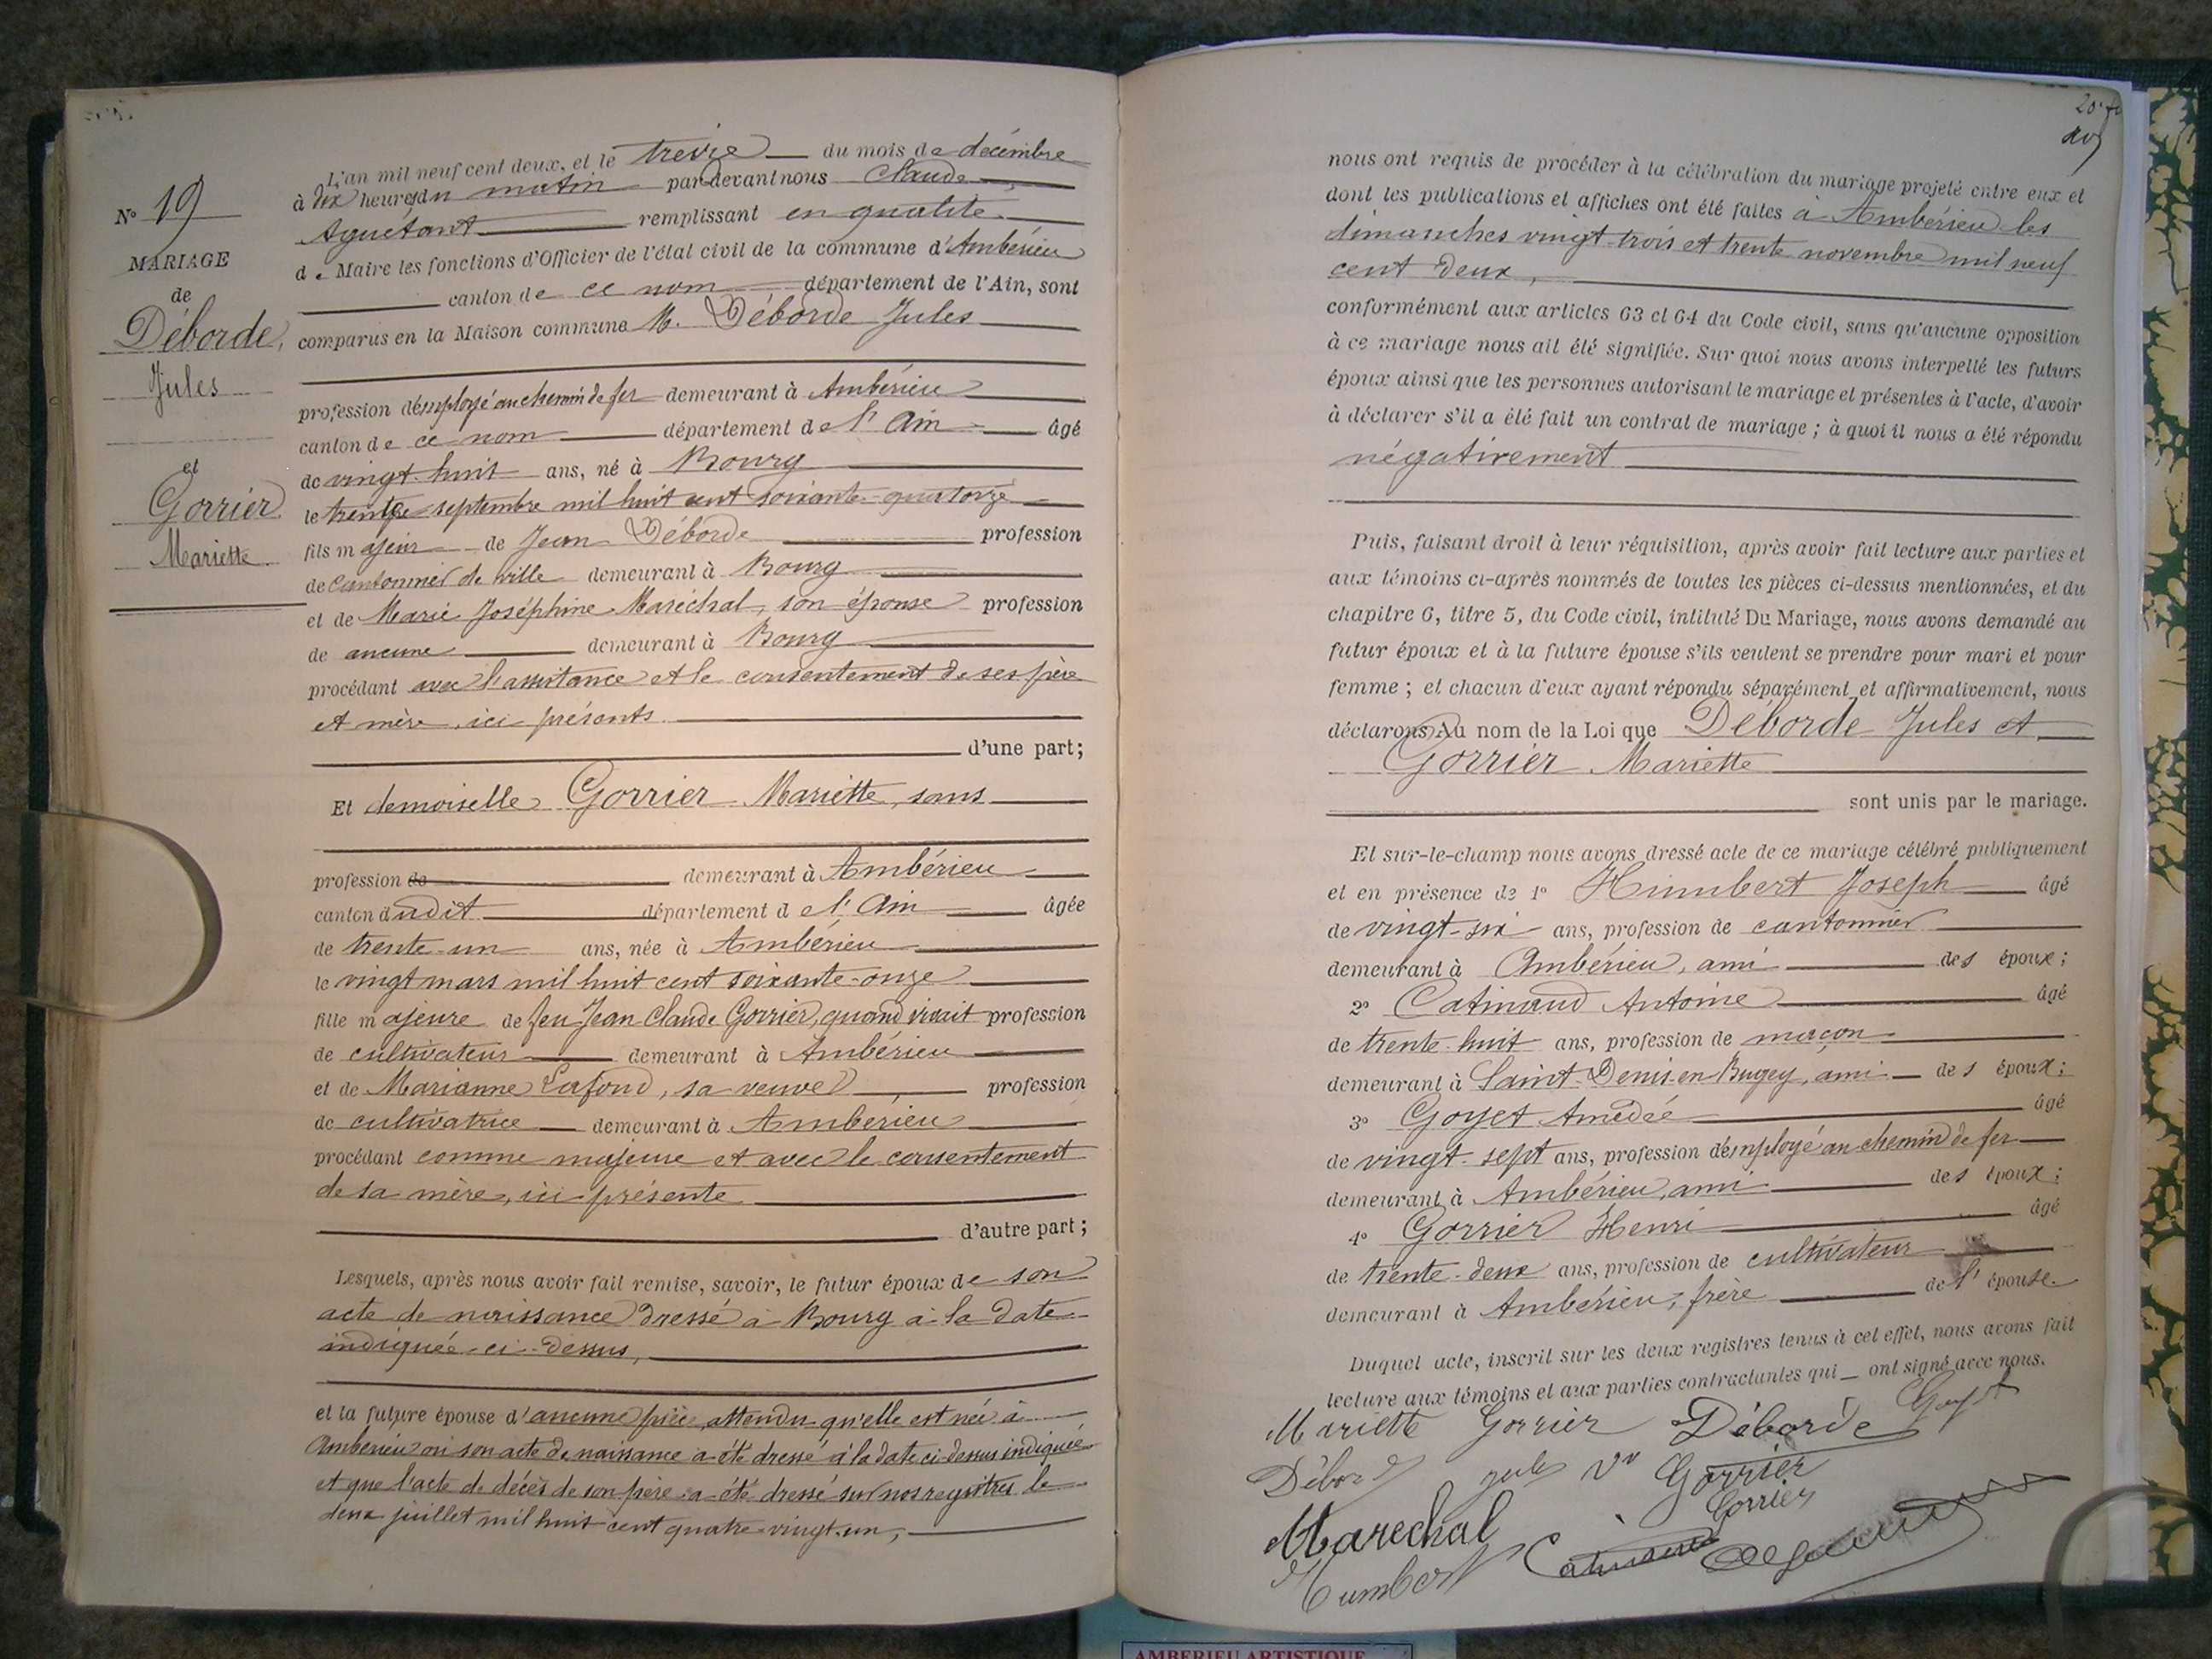 Nº 19
MARIAGE
de
Déborde,
Jules
et
Gorrier
Mariette
L'an mil neuf cent deux, et le treize du mois de décembre
à dix heures du matin par devant nous Claude
Aguétant remplissant en qualité
de Maire les fonctions d'Officier de l'état civil de la commune d'Ambérieu
canton de ce nom département de l'Ain, sont
comparus en la Maison commune M. Déborde Jules
profession d'employé au chemin de fer demeurant à Ambérieu
canton de ce nom département de l'Ain âgé
de vingt-huit ans, né à Bourg
le trente septembre mil huit cent soixante-quatorze
fils majeur de Jean Déborde profession
de cantonnier de ville demeurant à Bourg
et de Marie Joséphine Maréchal, son épouse profession
de aucune demeurant à Bourg
procédant avec l'assistance et le consentement de ses père
et mère, ici présents
d'une part;
Et demoiselle Gorrier Mariette, sans
profession de demeurant à Ambérieu
canton dudit département de l'Ain âgée
de trente-un ans, née à Ambérieu
le vingt mars mil huit cent soixante-onze
fille majeure de feu Jean Claude Gorrier, quand vivait profession
de cultivateur demeurant à Ambérieu
et de Marianne Lafond, sa veuve profession
de cultivatrice demeurant à Ambérieu
procédant comme majeure et avec le consentement
de sa mère, ici présente
d'autre part;
Lesquels, après nous avoir fait remise, savoir, le futur époux de son
acte de naissance dressé à Bourg à la date
indiquée ci-dessus,
et la future épouse d'aucune pièce, attendu qu'elle est née à
Ambérieu où son acte de naissance a été dressé à la date ci-dessus indiquée
et que l'acte de décès de son père a été dressé sur nos registres le
deux juillet mil huit cent quatre-vingt-un,
nous ont requis de procéder à la célébration du mariage projeté entre eux et
dont les publications et affiches ont été faites à Ambérieu les
dimanches vingt-trois et trente novembre mil neuf
cent deux,
conformément aux articles 63 et 64 du Code civil, sans qu'aucune opposition
à ce mariage nous ait été signifiée. Sur quoi nous avons interpellé les futurs
époux ainsi que les personnes autorisant le mariage et présentes à l'acte, d'avoir
à déclarer s'il a été fait un contrat de mariage ; à quoi il nous a été répondu
négativement
Puis, faisant droit à leur réquisition, après avoir fait lecture aux parties et
aux témoins ci-après nommés de toutes les pièces ci-dessus mentionnées, et du
chapitre 6, titre 5, du Code civil, intitulé Du Mariage, nous avons demandé au
futur époux et à la future épouse s'ils veulent se prendre pour mari et pour
femme ; et chacun d'eux ayant répondu séparément et affirmativement, nous
déclarons Au nom de la Loi que Déborde Jules et
Gorrier Mariette
sont unis par le mariage.
Et sur-le-champ nous avons dressé acte de ce mariage célébré publiquement
et en présence de 1º Humbert Joseph âgé
de vingt-six ans, profession de cantonnier
demeurant à Ambérieu, ami des époux;
2º Catinaud Antoine âgé
de trente-huit ans, profession de maçon
demeurant à Saint-Denis-en-Bugey, ami des époux;
3º Goyet Amédée âgé
de vingt-sept ans, profession d'employé au chemin de fer
demeurant à Ambérieu, ami des époux;
4º Gorrier Henri âgé
de trente-deux ans, profession de cultivateur
demeurant à Ambérieu, frère de l'épouse.
Duquel acte, inscrit sur les deux registres tenus à cet effet, nous avons fait
lecture aux témoins et aux parties contractantes qui ont signé avec nous.
Mariette Gorrier Déborde Goyet
Déborde Jules Vve Gorrier
Gorrier
Marechal
Humbert
AMBERIEU ARTISTIQUE